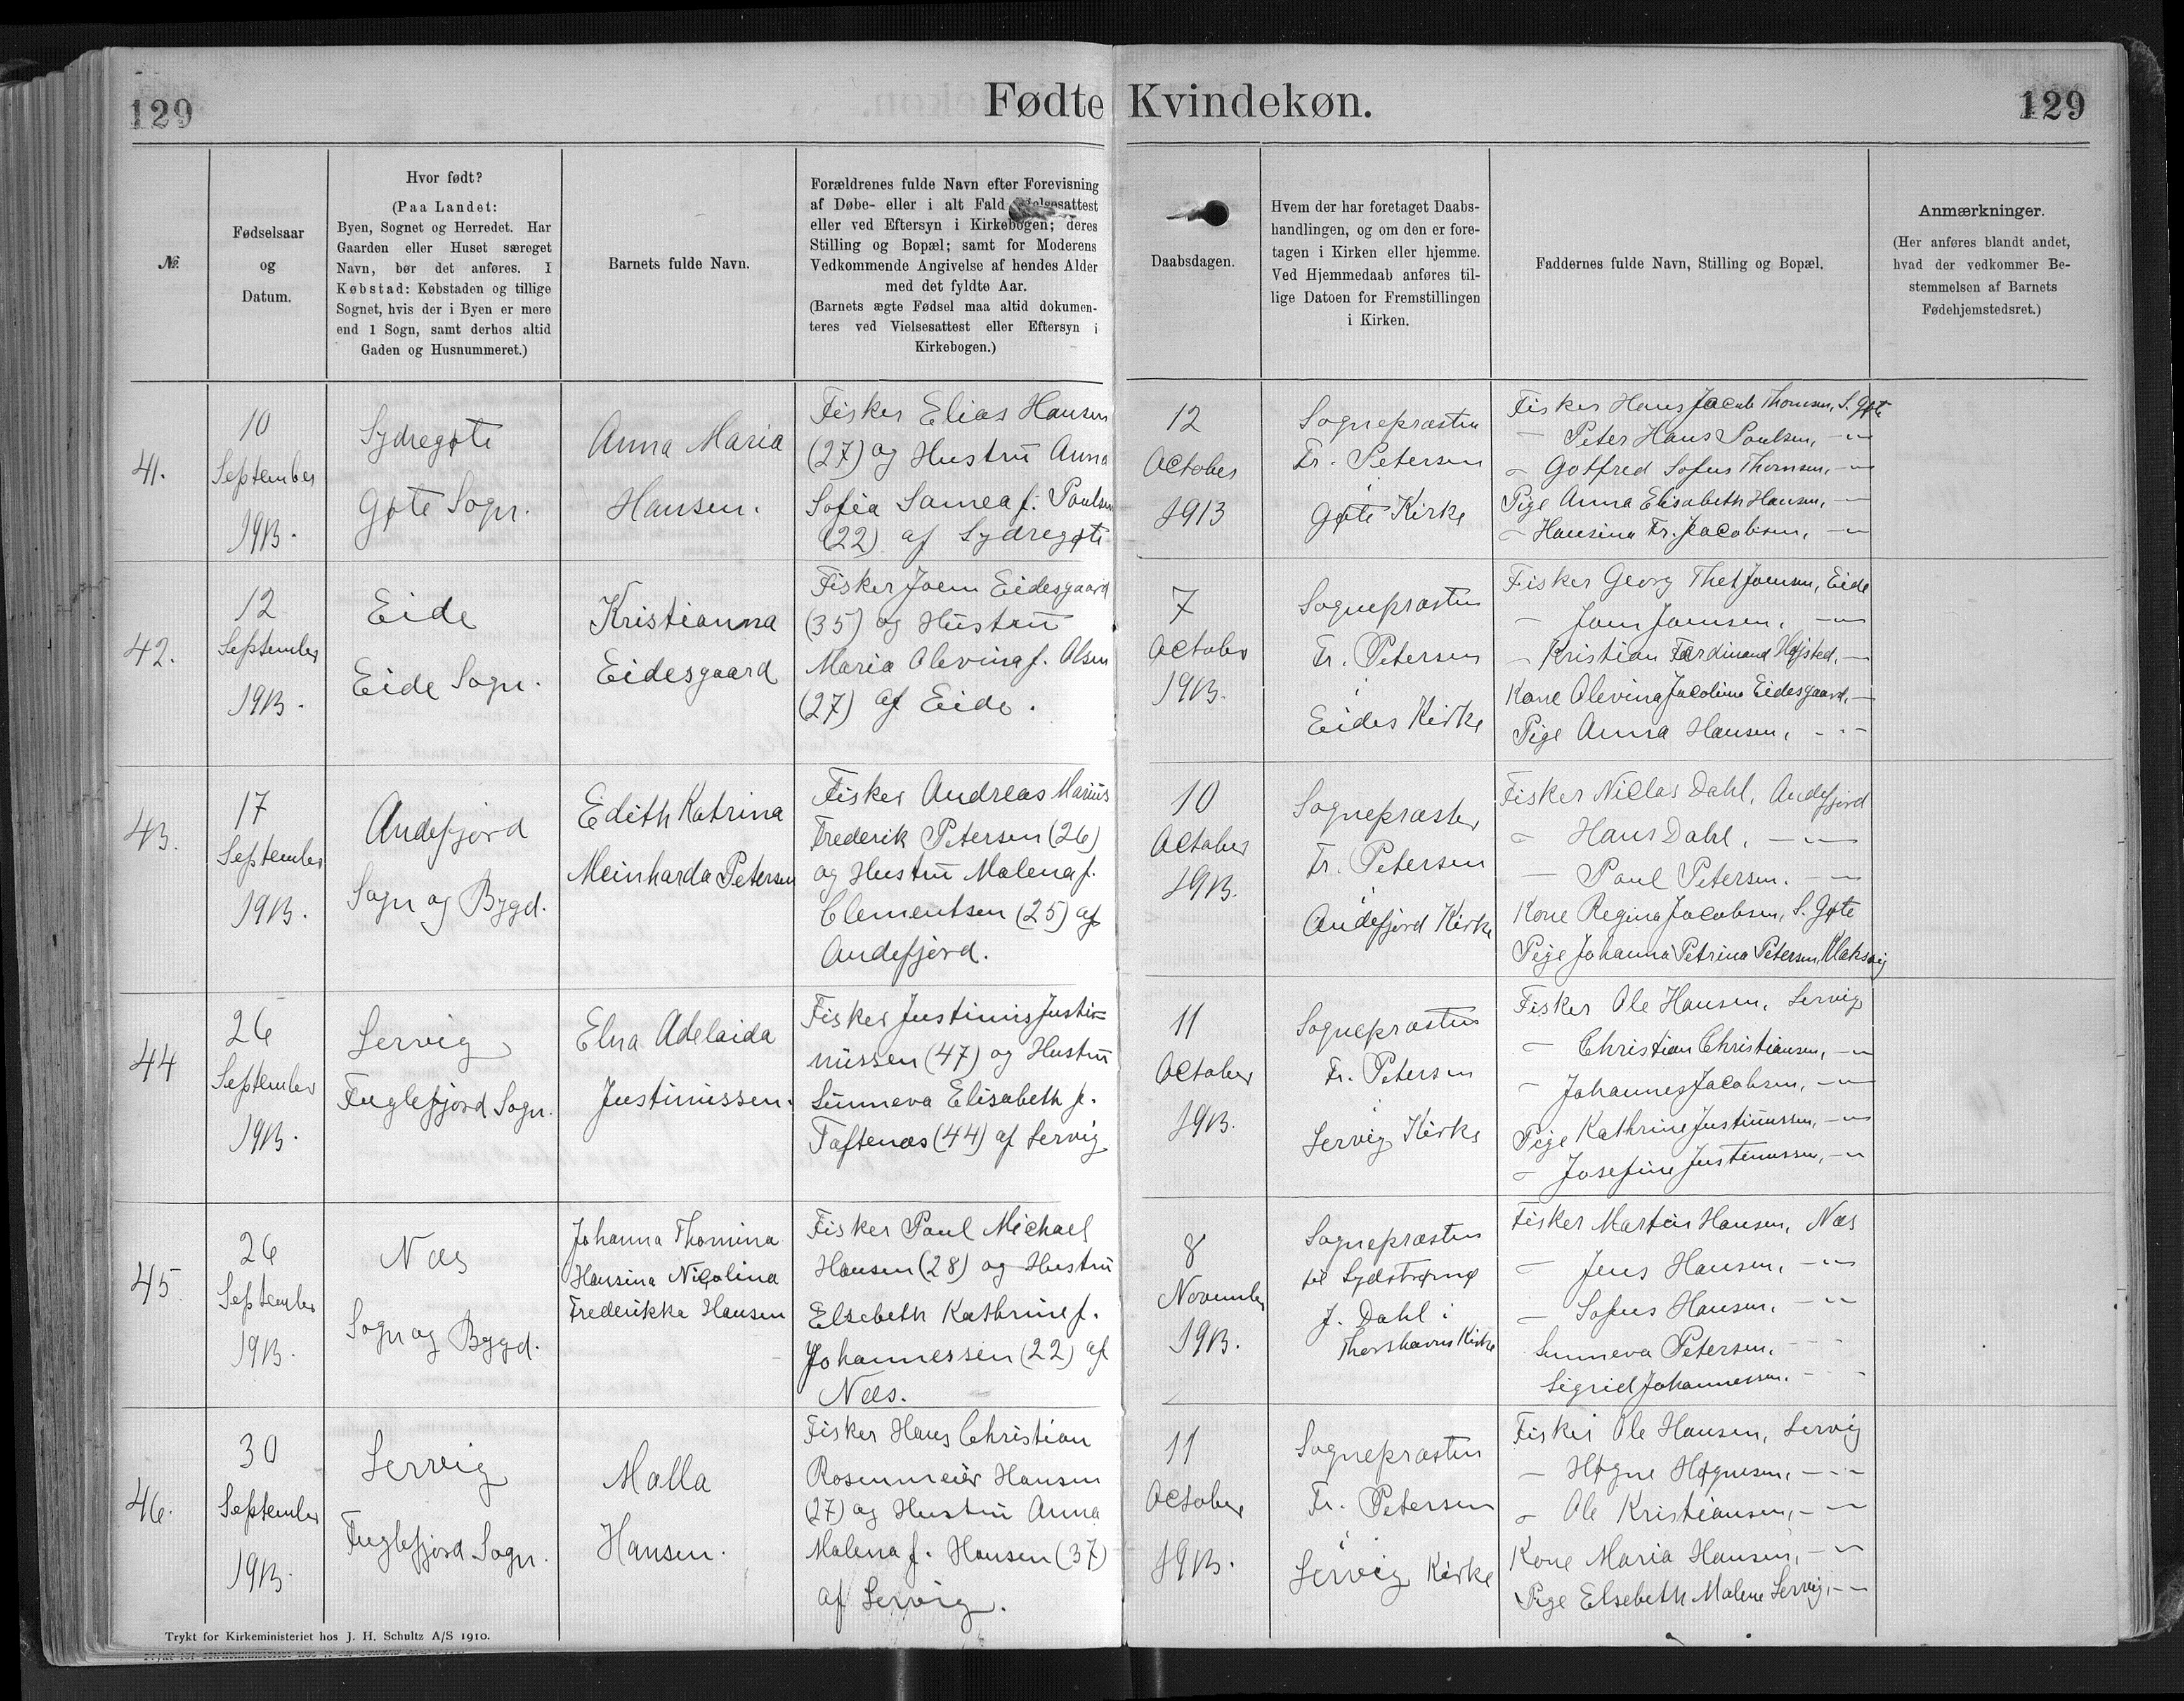 129
Fødte Kvindekøn.
129
№
Fødselsaar
og
Datum.
Hvor født?
(Paa Landet:
Byen, Sognet og Herredet. Har
Gaarden eller Huset særeget
Navn, bør det anføres. I
Købstad: Købstaden og tillige
Sognet, hvis der i Byen er mere
end 1 Sogn, samt derhos altid
Gaden og Husnummeret.)
Barnets fulde Navn.
Forældrenes fulde Navn efter Forevisning
af Døbe- eller i alt Fald Fødelsesattest
eller ved Eftersyn i Kirkebogen; deres
Stilling og Bopæl; samt for Moderens
Vedkommende Angivelse af hendes Alder
med det fyldte Aar.
(Barnets ægte Fødsel maa altid dokumen-
teres ved Vielsesattest eller Eftersyn i
Kirkebogen.)
Daabsdagen.
Hvem der har foretaget Daabs-
handlingen, og om den er fore-
tagen i Kirken eller hjemme.
Ved Hjemmedaab anføres til-
lige Datoen for Fremstillingen
i Kirken.
Faddernes fulde Navn, Stilling og Bopæl.
Anmærkninger.
(Her anføres blandt andet,
hvad der vedkommer Be-
stemmelsen af Barnets
Fødehjemstedsret.)
41.
10
September
1913.
Sydregøte
Gøte Sogn.
Anna Maria
Hansen.
Fisker Elias Hansen
(27) og Hustrú Anna
Sofia Samea f. Poulsen
(22) af Sydregøte
12
October
1913
Sognepræsten
Fr. Petersen
i
Gøte Kirke
Fisker Hans Jacob Thomsen, S. Gøte
— Peter Hans Poulsen, —
— Gotfred Sofus Thomsen, —
Pige Anna Elisabeth Hansen, —
— Hansina Fr. Jacobsen, —
42.
12
September
1913.
Eide
Eide Sogn.
Kristianna
Eidesgaard
Fisker Joen Eidesgaard
(35) og Hústrú
Maria Olevina f. Olsen
(27) af Eide.
7
October
1913.
Sognepræsten
Fr. Petersen
i
Eides Kirke
Fisker Georg Joensen, Eide
— Joen Joensen, —
— Kristian Ferdinand Højsted, —
Kone Olevina Jacobina Eidesgaard, —
Pige Anna Hansen, —
43.
17
September
1913.
Andefjord
Sogn og Bygd.
Edith Katrina
Meinharda Petersen
Fisker Andreas Marius
Frederik Petersen (26)
og Hustrú Malena f.
Clementsen (25) af
Andefjord.
10
October
1913.
Sognepræsten
Fr. Petersen
i
Andefjord Kirke
Fisker Niclas Dahl, Andefjord
— Hans Dahl, —
— Poul Petersen. —
Kone Regina Jacobsen, S. Gøte
Pige Johanna Petrina Petersen, Klaksvig
44
26
September
1913.
Lervig
Fuglefjord Sogn.
Elna Adelaida
Justinussen.
Fisker Justinus Justi-
nussen (47) og Hustrú
Sunneva Elisabeth f.
Toftenæs (44) af Lervig
11
October
1913.
Sognepræsten
Fr. Petersen
i
Lervig Kirke
Fisker Ole Hansen, Lervig
— Christian Christiansen, —
— Johannes Jacobsen, —
Pige Kathrine Justinussen, —
— Josefine Justinussen, —
45.
26
September
1913.
Næs
Sogn og Bygd.
Johanna Thomina
Hansina Nicolina
Frederikka Hansen
Fisker Poul Michael
Hansen (28) og Hustrú
Elsebeth Kathrine f.
Johannessen (22) af
Næs.
8
November
1913.
Sognepræsten
til Sydstrømø
J. Dahl i
Thorshavns Kirke
Fisker Martin Hansen, Næs
— Jens Hansen, —
— Sofus Hansen. —
Sunneva Petersen, —
Sigrid Johannessen. —
46.
30
September
1913.
Lervig
Fuglefjord Sogn.
Malla
Hansen.
Fisker Hans Christian
Rosenmeier Hansen
(27) og Hustrú Anna
Malena f. Hansen (37)
af Lervig.
11
October
1913.
Sognepræsten
Fr. Petersen
i
Lervig Kirke
Fisker Ole Hansen, Lervig
— Høgne Høgnesen, —
— Ole Kristiansen, —
Kone Maria Hansen, —
Pige Elsebeth Malene Lervig, —
Trykt for Kirkeministeriet hos J. H. Schultz A/S 1910.